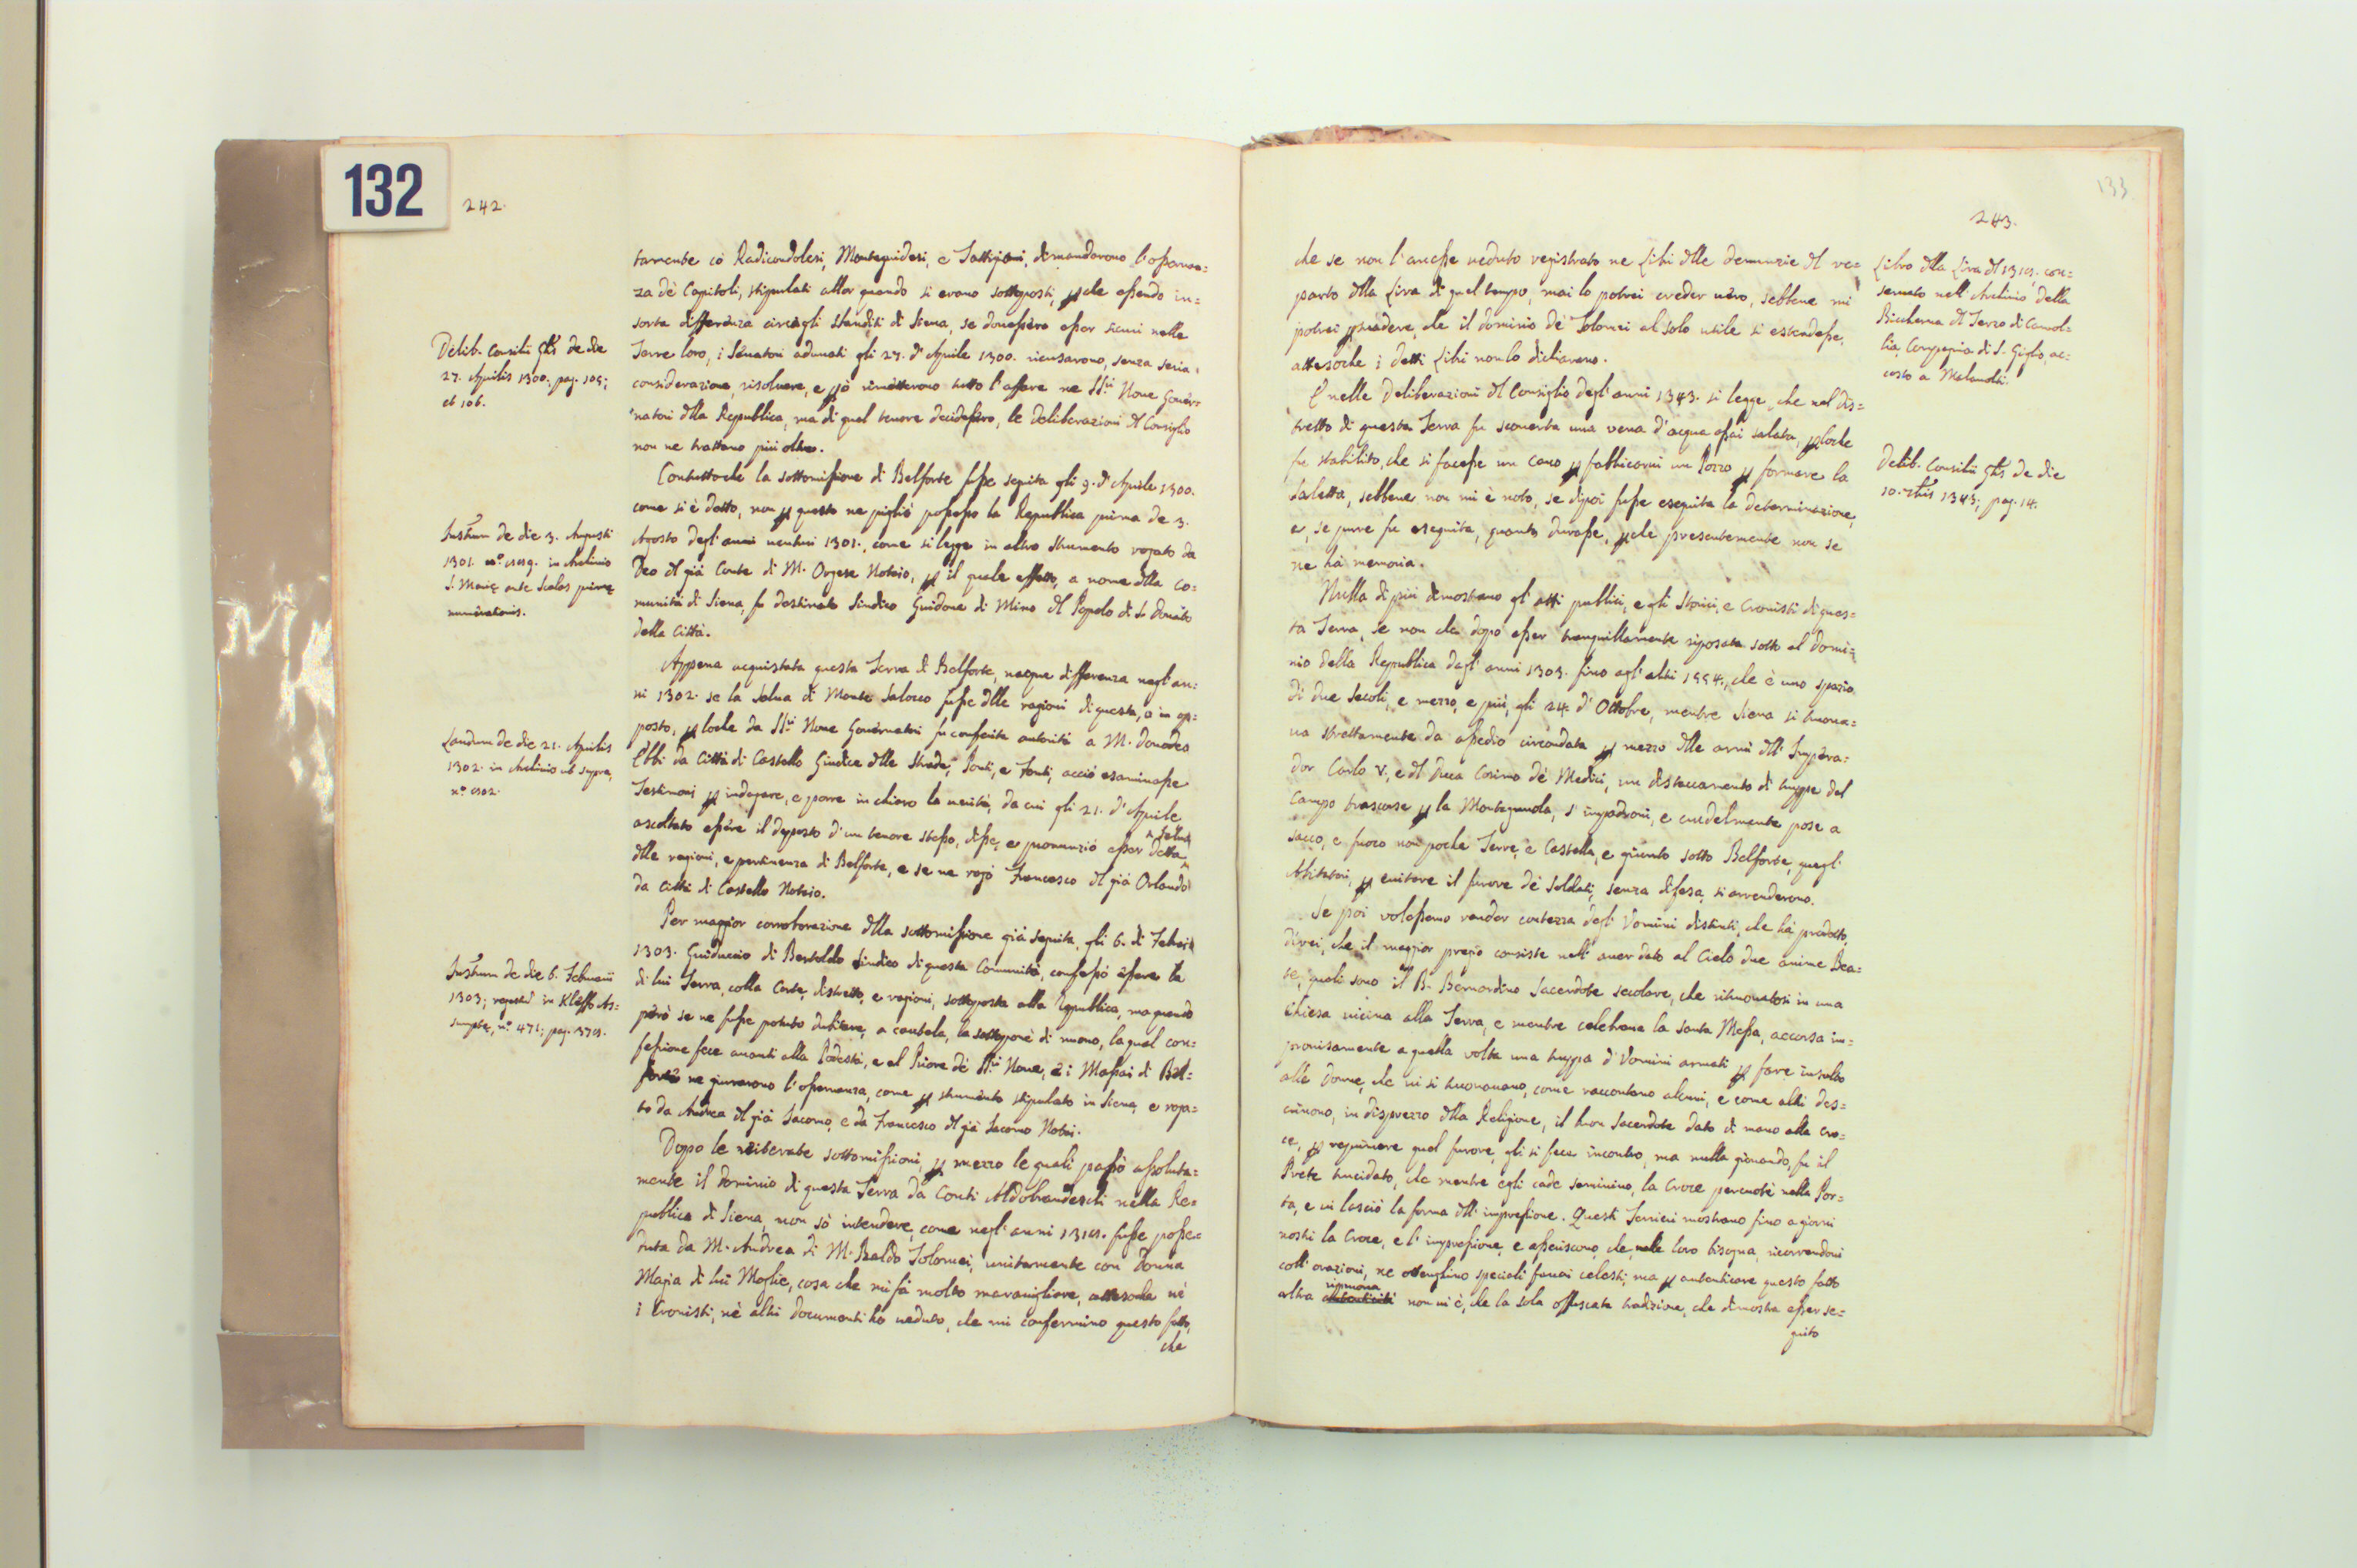 132
242.
tamente cò Radicondolesi, Monteguidesi, e Tattijani, dimandorono l'osservan=
za dè Capitoli, stipulati allor quando si erano sottoposti, ꝑche essendo in=
sorta differenza circa gli sbanditi di Siena, se dovessero esser sicuri nelle
Terre loro, i Senatori adunati gli 27. d'Aprile 1300. ricusarono, senza seria
considerazione, risolvere, e ꝑò rimetterono tutto l'affare ne SSri Nove Gover=
natori dlla Republica, ma di qual tenore decidessero, le Deliberazioni dl Consiglio
non ne trattano più oltre.
Delib. Consilii Glis de die
27. Aprilis 1300. pag. 105;
et 106.
Contuttoche la sottomissione di Belforte fusse seguita gli 9. d'Aprile 1300.
come si è detto, non ꝑ questo ne pigliò possesso la Republica prima de 3.
Agosto degl'anni venturi 1301., come si legge in altro strumento rogato da
Deo dl già Conte di M. Orgese Notaio, ꝑ il quale effetto, a nome dlla Co=
munità di Siena, fu destinato Sindico Guidone di Mino dl Popolo di S. Donato
della Città.
Instrum de die 3. Augusti
1301. no. in Archivio
S. Marię ante Scalas primę
numerationis.
Appena acquistata questa Terra di Belforte, nacque differenza negl'an=
ni 1302. se la Selva di Monte Salocco fusse dlle ragioni di questa, o in op=
posto, ꝑloche da SSri Nove Governatori fu conferita autorità a M. Donodeo
Ebbi da Città di Castello Giudice dlle Strade, Ponti, e Fonti, acciò esaminasse
Testimoni ꝑ indagare, e porre in chiaro la verità, da cui gli 21. d'Aprile
ascoltato essere il deposto d'un tenore stesso, disse, e pronunziò esser detta Selva
dlle ragioni, e pertinenza di Belforte, e se ne rogò Francesco dl già Orlando
da Città di Castello Notaio.
Laudum de die 21. Aprilis
1302. in Archivio ut supra,
no.
Per maggior corroborazione dlla sottomissione già seguita, gli 6. di Febraio
1303. Guiduccio di Bertoldo Sindico di questa Comunità, confessò essere la
di lui Terra, colla Corte, distretto, e ragioni, sottoposta alla Republica, ma quando
però se ne fusse potuto dubitare, a cautela, la sottopone di nuovo, la qual con=
fessione fece avanti alla Podestà, e al Priore dè SSri Nove, e i Massai di Bel=
forte ne giurarono l'osservanza, come ꝑ strumento stipulato in Siena, e roga=
to da Andrea dl già Jacomo, e da Francesco dl già Jacomo Notai.
Instrum de die 6. Februarii
1303; registrat in Kleffo As=
sumptę, no. 471; pag.
Dopo le reiterate sottomissioni, ꝑ mezzo le quali passò assoluta=
mente il dominio di questa Terra da Conti Aldobrandeschi nella Re=
publica di Siena, non sò intendere, come negl'anni fusse posse=
duta da M. Andrea di M. Baldo Tolomei, unitamente con Donna
Magia di lui Moglie, cosa che mi fà molto maravigliare, attesoche nè
i Cronisti, nè altri documenti ho veduto, che mi confermino questo fatto,
che
133
243.
che se non l'avesse veduto registrato ne Libri dlle denunzie dl re=
parto dlla Lira di quel tempo, mai lo potrei creder vero, sebbene mi
potrei ꝑsuadere, che il dominio dè Tolomei al solo utile si estendesse,
attesoche i detti Libri non lo dichiarano.
Libro dlla Lira dl con=
servato nell'Archivio della
Biccherna dl Terzo di Camol=
lia, Compagnia di S. Giglio, ac=
costo a Malavolti.
E nelle Deliberazioni dl Consiglio degl'anni 1343. si legge, che nel dis=
tretto di questa Terra fu scoverta una vena d'acqua assai salata, ꝑloche
fu stabilito, che si facesse un cavo ꝑ fabbricarvi un Pozzo ꝑ formare la
Saletta, sebbene non mi è noto, se dipoi fusse eseguita la determinazione,
e, se purre fu eseguita, quanto durasse, ꝑche presentemente non se
ne hà memoria.
Delib. Consilii Glis de die
10. 1343; pag. 14.
Nulla di più dimostrano gl'atti publici, e gli Storici, e Cronisti di ques=
ta Terra, se non che dopo esser tranquillamente riposata sotto al domi=
nio della Republica dagl'anni 1303. fino agl'altri 1554., che è uno spazio
di due secoli, e mezzo, e più, gli 24. d'Ottobre, mentre Siena si trova=
va strettamente da assedio circondata ꝑ mezzo dlle armi dll'Impera=
dor Carlo V., e dl Duca Cosimo dè Medici, un distaccamento di truppe del
Campo trascorse ꝑ la Montagnola, s'impadronì, e crudelmente pose a
sacco, e fuoco non poche Terre, e Castella, e giunto sotto Belforte, quegl'
Abitatori, ꝑ evitare il furore dè Soldati, senza difesa, si arrenderono.
Se poi volessemo render contezza degl'Uomini distinti, che hà prodotto,
direi, che il maggior pregio consiste nell'aver dato al Cielo due anime Bea=
te, quali sono il B. Bernardino Sacerdote secolare, che ritrovatosi in una
Chiesa vicina alla Terra, e mentre celebrava la santa Messa, accorsa im=
provisamente a quella volta una truppa d'Uomini armati ꝑ fare insulto
alle donne, che vi si trovavano, come raccontano alcuni, e come altri des=
crivono, in disprezzo dlla Religione, il buon Sacerdote dato di mano alla Cro=
ce, ꝑ reprimere quel furore, gli si fece incontro, ma nulla giovando, fu il
Prete trucidato, che mentre egli cade semivivo, la Croce percuotè nella Por=
ta, e vi lasciò la forma dll'impressione. Questi Terrieri mostrano fino a giorni
nostri la Croce, e l'impressione, e asseriscono, che nelle loro bisogna, ricorrendovi
coll'orazioni, ne ottenghino speciali favori celesti, ma ꝑ autenticare questo fatto
altra riprova non vi è, che la sola offuscata tradizione, che dimostra esser se=
guito